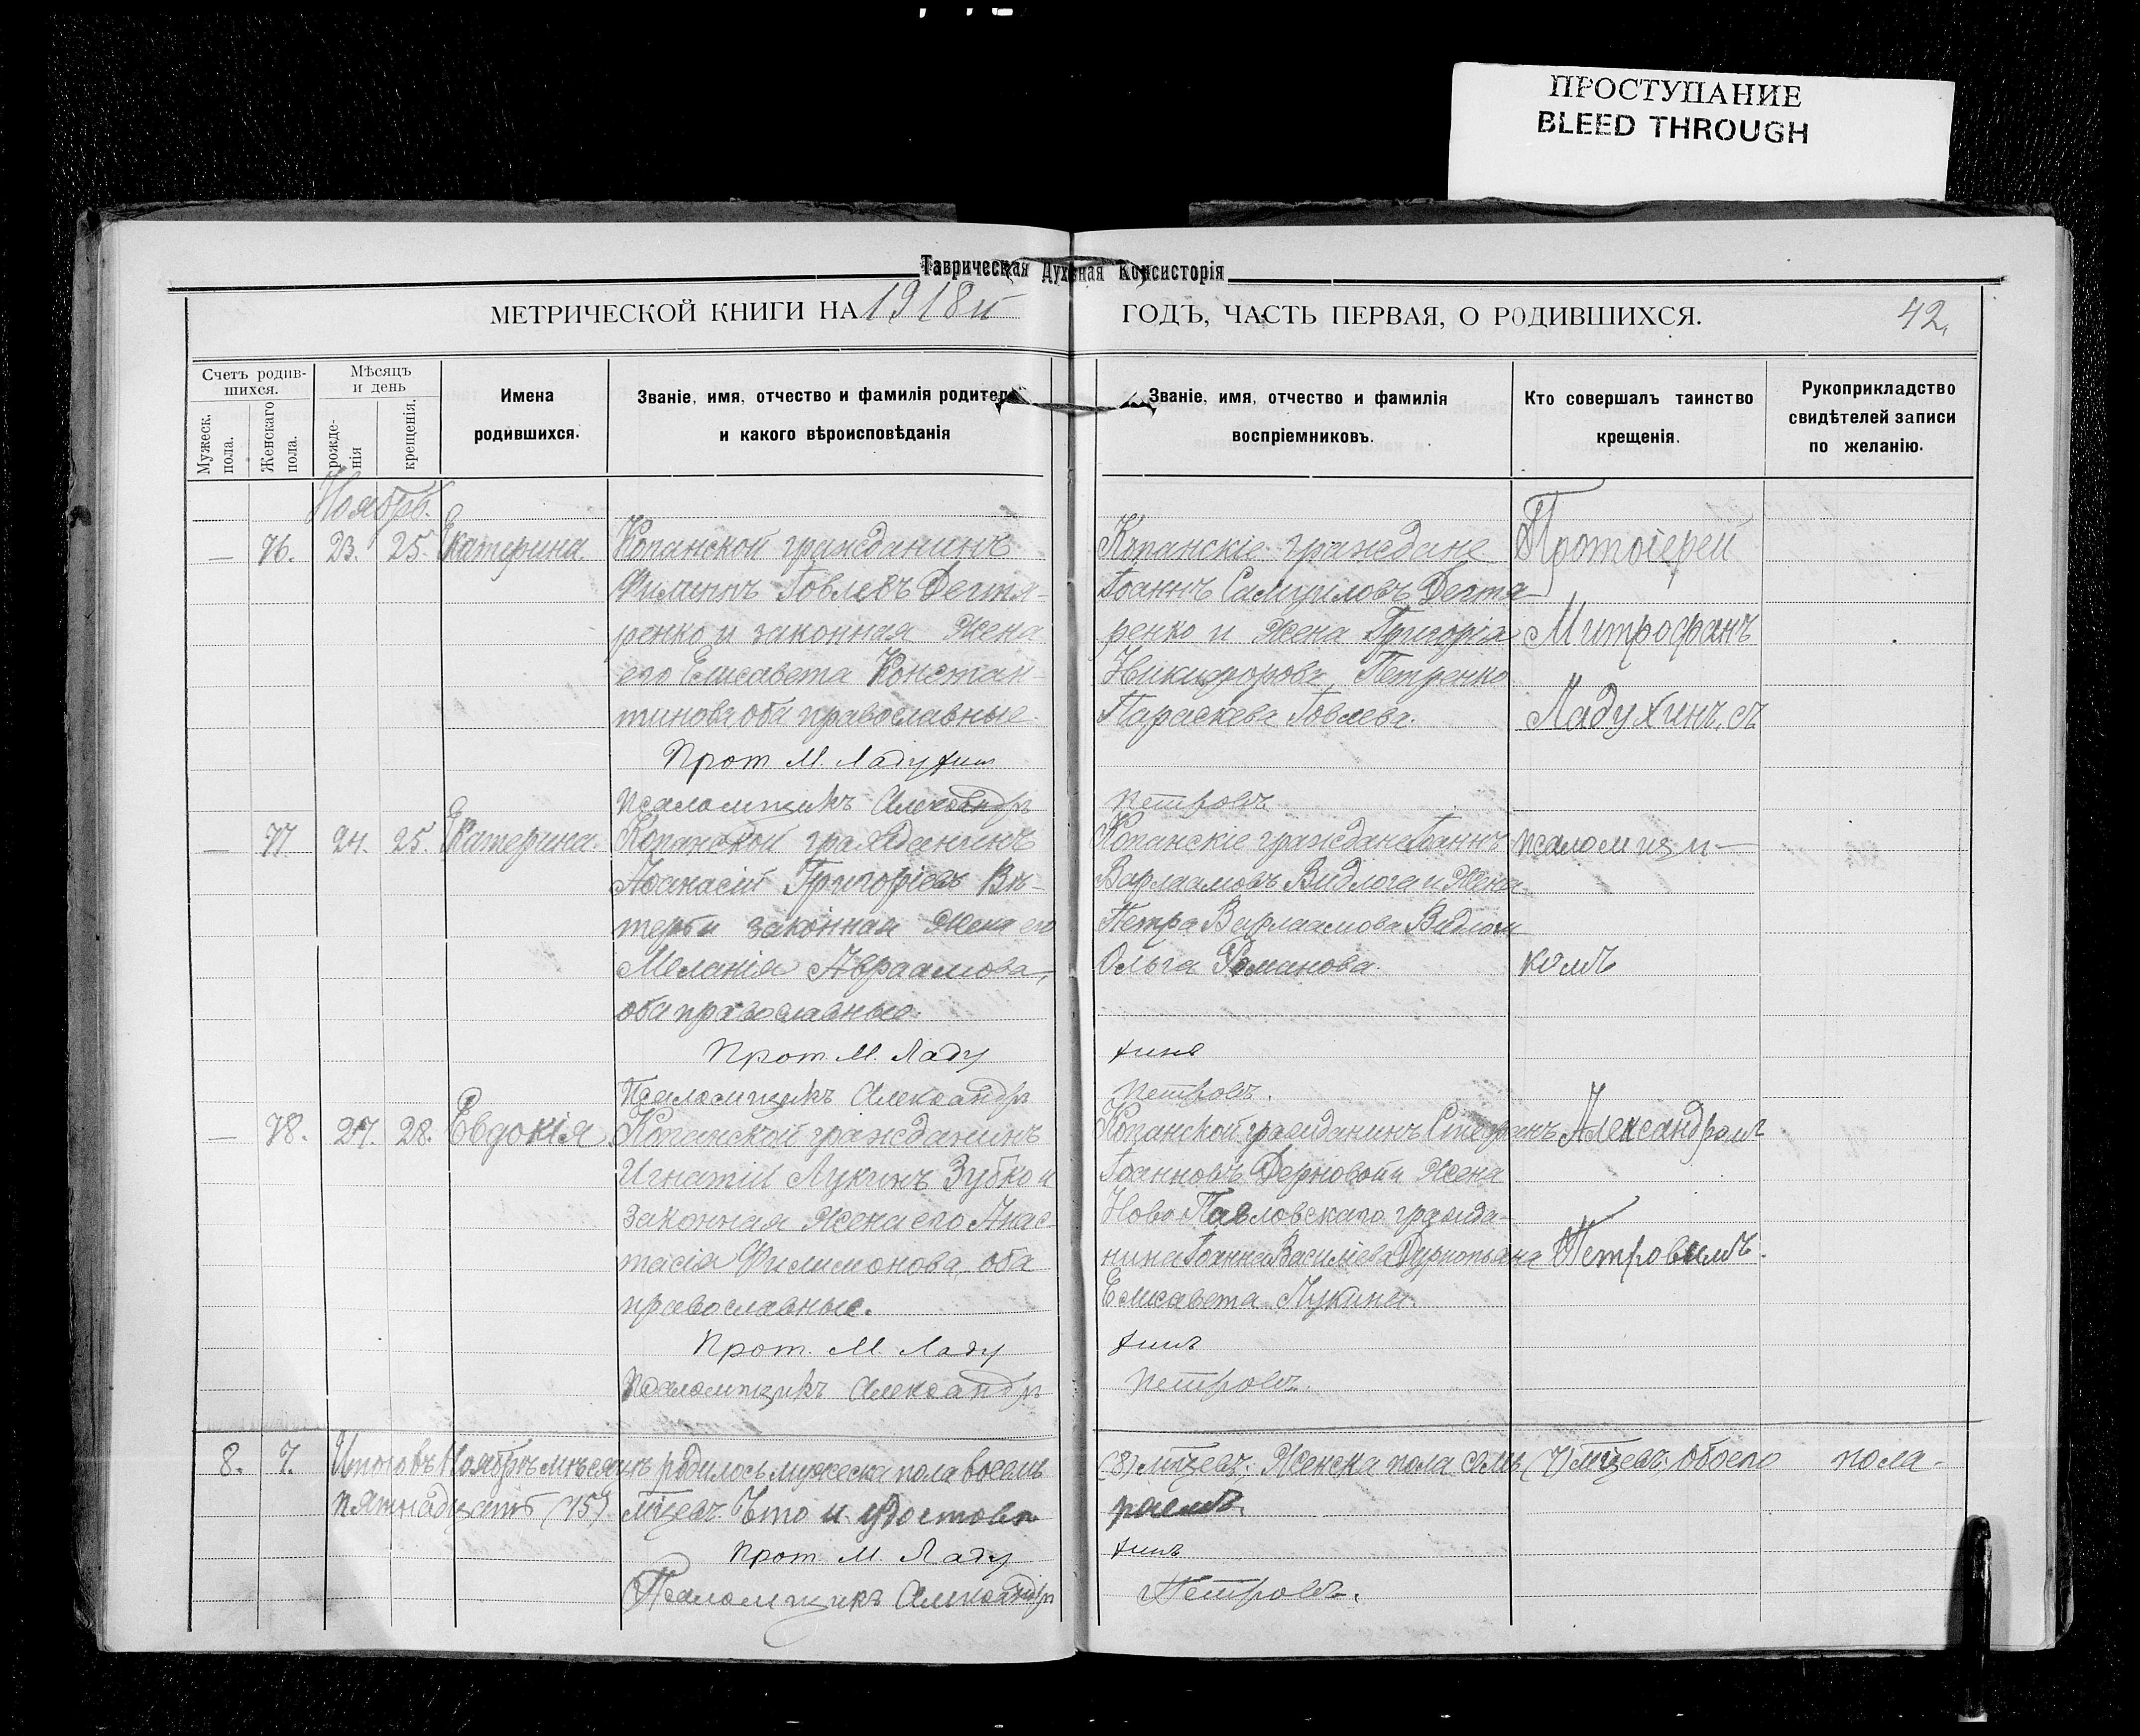 ПРОСТУПАНИЕ
BLEED THROUGH
Таврическая Духовная Консисторія
МЕТРИЧЕСКОЙ КНИГИ НА 1918й
ГОДЪ, ЧАСТЬ ПЕРВАЯ, О РОДИВШИХСЯ.
42.
Счетъ родив-
шихся.
Мужеск.
пола.
Женскаго
пола.
Мѣсяцъ
и день
рожде-
нія
крещенія.
Имена
родившихся.
Званіе, имя, отчество и фамилія родител
и какого вѣроисповѣданія
Званіе, имя, отчество и фамилія
воспріемниковъ.
Кто совершалъ таинство
крещенія.
Рукоприкладство
свидѣтелей записи
по желанію.
Ноябрь.
— 76. 23. 25. Екатерина
Копанской гражданинъ
Филиппъ Іовлевъ Дегтя-
ренко и законная жена
его Елисавета Констан-
тинова, оба православные.
Прот. М. Ладухинъ
Псаломщикъ Александръ
Копанскіе граждане
Іоаннъ Самуиловъ Дегтя-
ренко и жена Григорія
Никифорова Петренко
Параскева Іовлева.
Петровъ
Протоіерей
Митрофанъ
Ладухинъ, съ
— 77 24. 25. Екатерина.
Копанской гражданинъ
Афанасій Григоріевъ
законная жена его
Меланія Авраамова,
оба православные.
Прот. М. Ладу
Псаломщикъ Александръ
Копанскіе граждане Іоаннъ
Варлаамовъ Видлога и жена
Петра Варлаамова
Ольга Романова.
хинъ
Петровъ.
псаломщи-
комъ
— 78. 27. 28. Евдокія
Копанской гражданинъ
Игнатій Лукинъ Зубко и
законная жена его Анас-
тасія Филимонова, оба
православные.
Прот. М. Ладу
Псаломщикъ Александръ
Копанской гражданинъ Стефанъ
Іоанновъ Дерновой и жена
Ново Павловскаго гражда-
нина Іоанна Василіева
Елисавета Лукина.
хинъ
Петровъ.
Александромъ
Петровымъ.
8. 7. Итого въ Ноябрѣ мѣсяцѣ родилось мужеска пола восемь
(8) м҃цевъ; женска пола семь (7) м҃цевъ, обоего пола-
пятнадцать (15) м҃цевъ. Что и удостовѣ
ряемъ.
Прот. М. Ладу
хинъ
Псаломщикъ Александръ
Петровъ.